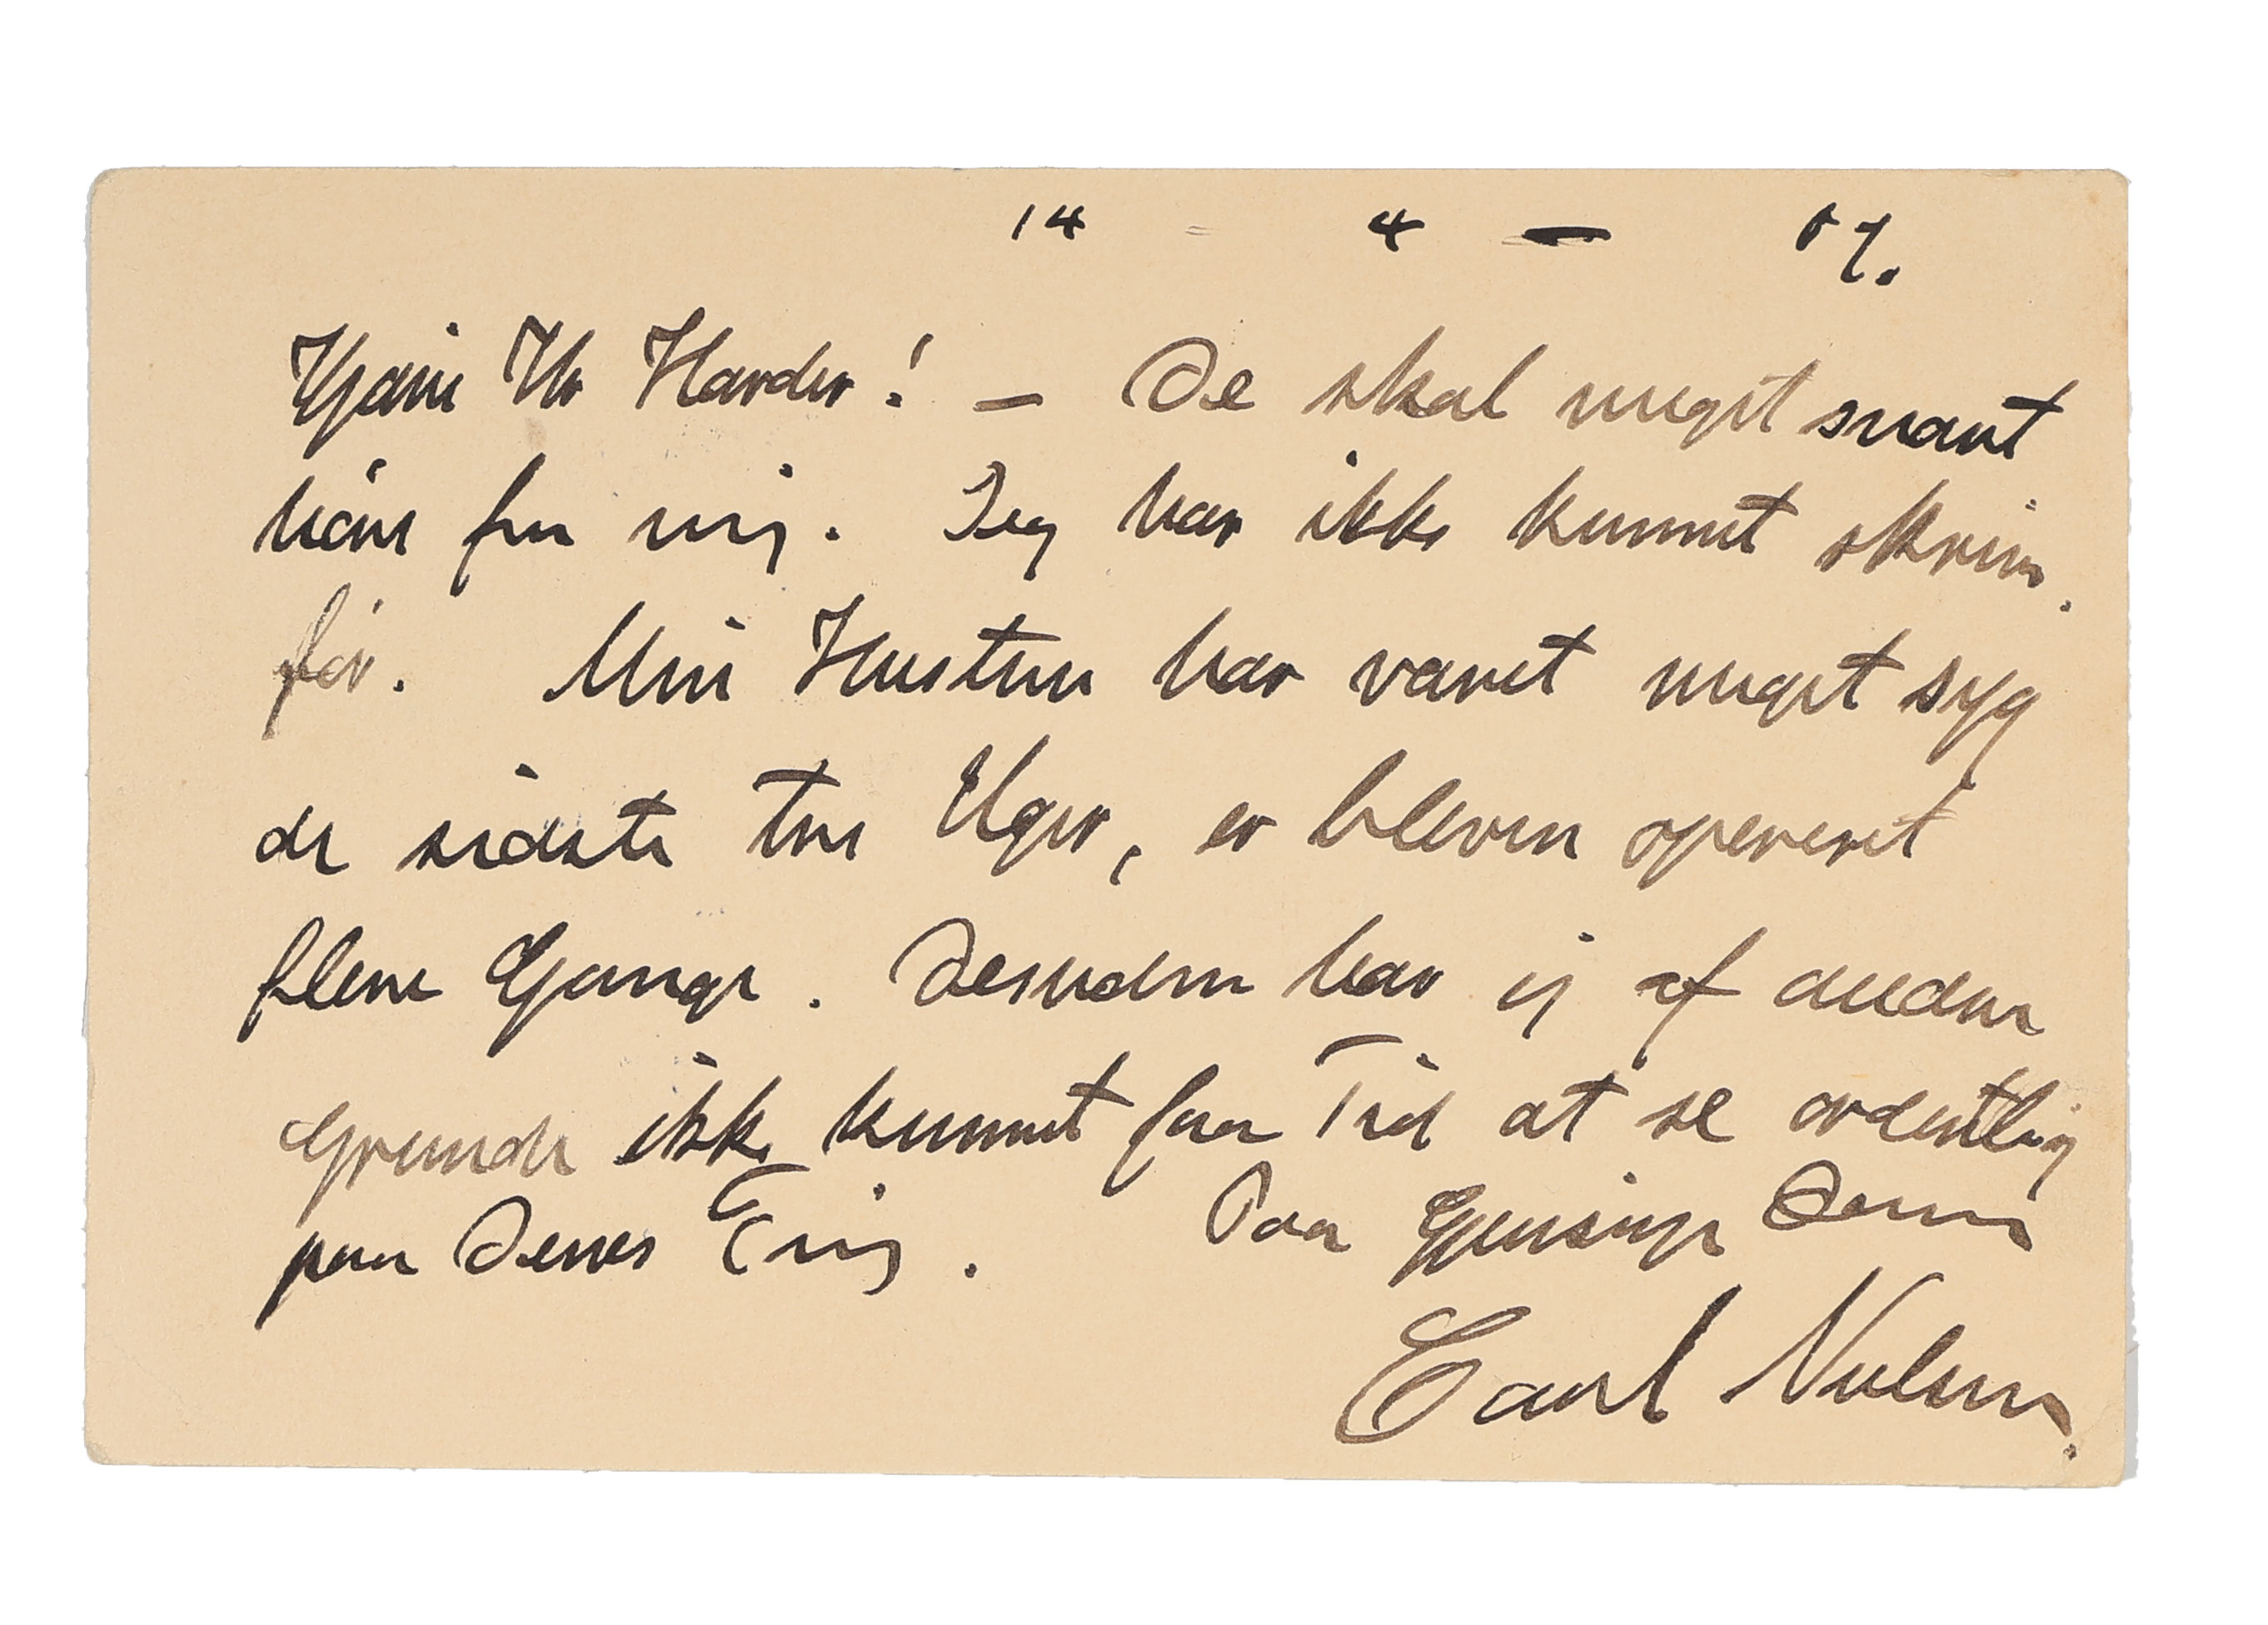 14 – 4 – 07.
Kjære Hr Harder! – De skal meget snart
høre fra mig. Jeg har ikke kunnet skrive
før. Min Hustru har været meget syg
de sidste tre Uger, er bleven opereret
flere Gange. Desuden har jeg af andre
Grunde ikke kunnet faa Tid at se ordentlig
paa Deres Ting. Paa Gjensyn Deres
Carl Nielsen.